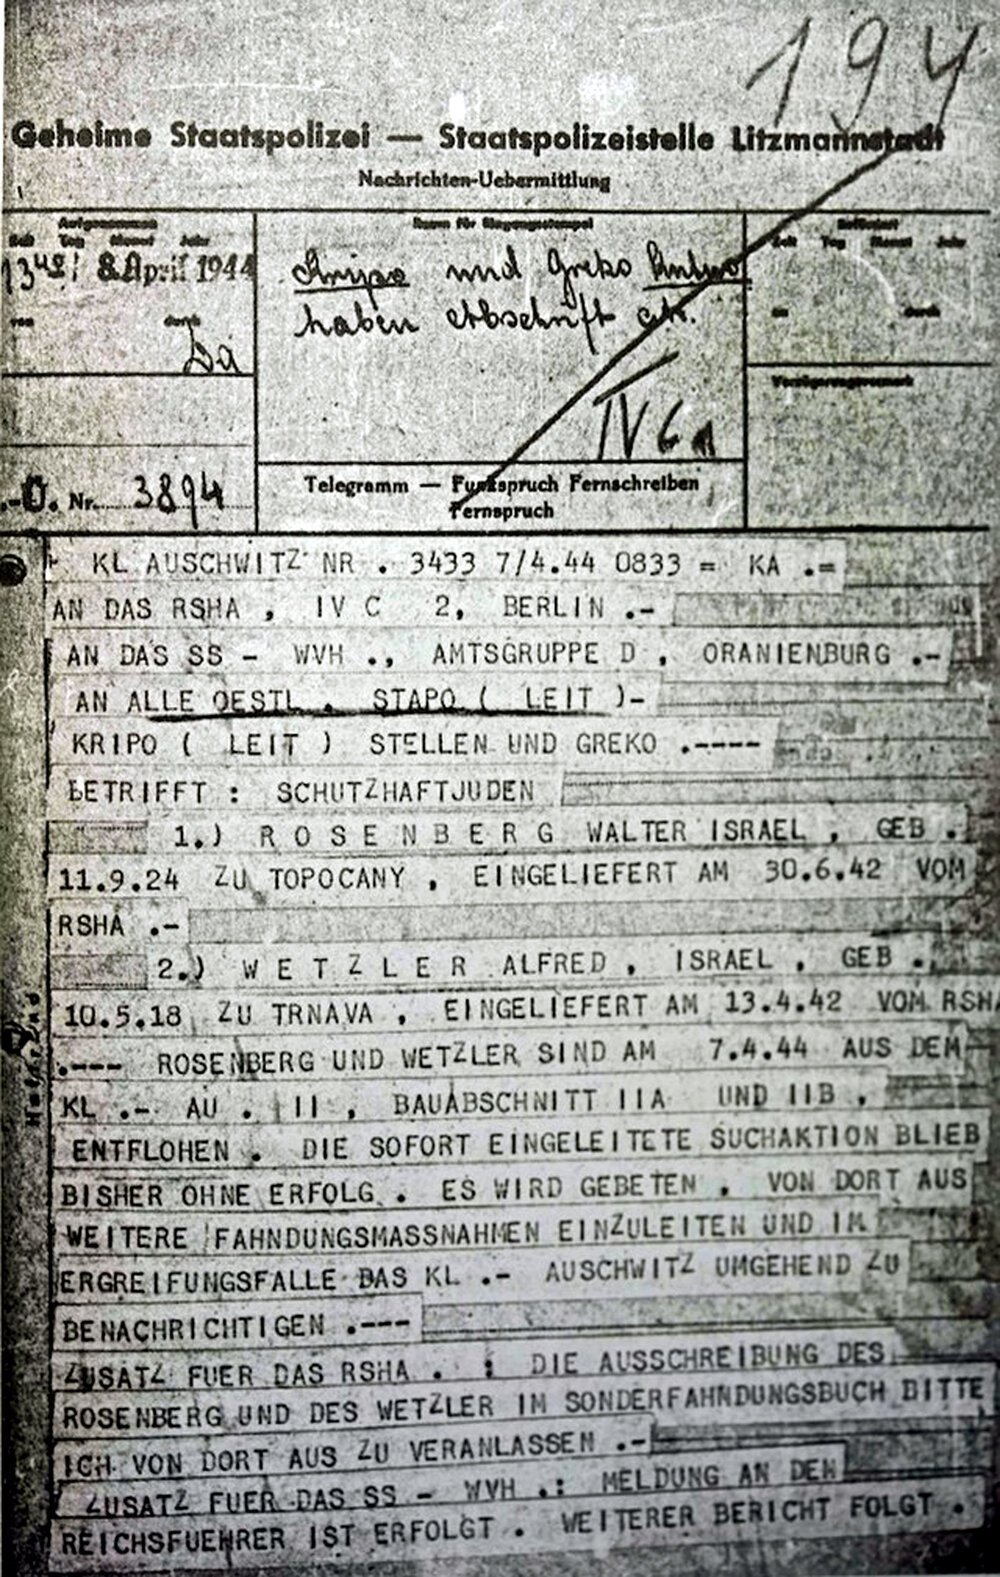 194
Geheime Staatspolizei — Staatspolizeistelle Litzmannstadt
Nachrichten-Uebermittlung
Aufgenommen
Zeit Tag Monat Jahr
Raum für Eingangsstempel
Befördert
Zeit Tag Monat Jahr
13 40 8. April 1944
und Greko
haben Abschrift erh.
von durch
an durch
Verzögerungsvermerk
IV 6 a
Nr. 3894
Telegramm — Funkspruch Fernschreiben
Fernspruch
+ KL AUSCHWITZ NR . 3433 7/4.44 0833 = KA .=
AN DAS RSHA , IV C 2, BERLIN .-
AN DAS SS - WVH ., AMTSGRUPPE D , ORANIENBURG .-
AN ALLE OESTL . STAPO ( LEIT )-
KRIPO ( LEIT ) STELLEN UND GREKO .----
BETRIFFT : SCHUTZHAFTJUDEN
1.) R O S E N B E R G WALTER ISRAEL , GEB .
11.9.24 ZU TOPOCANY , EINGELIEFERT AM 30.6.42 VOM
RSHA .-
2.) W E T Z L E R ALFRED , ISRAEL , GEB .
10.5.18 ZU TRNAVA , EINGELIEFERT AM 13.4.42 VOM RSHA
.---- ROSENBERG UND WETZLER SIND AM 7.4.44 AUS DEM
KL .- AU . II , BAUABSCHNITT IIA UND IIB ,
ENTFLOHEN . DIE SOFORT EINGELEITETE SUCHAKTION BLIEB
BISHER OHNE ERFOLG . ES WIRD GEBETEN , VON DORT AUS
WEITERE FAHNDUNGSMASSNAHMEN EINZULEITEN UND IM
ERGREIFUNGSFALLE DAS KL .- AUSCHWITZ UMGEHEND ZU
BENACHRICHTIGEN .---
ZUSATZ FUER DAS RSHA . : DIE AUSSCHREIBUNG DES
ROSENBERG UND DES WETZLER IM SONDERFAHNDUNGSBUCH BITTE
ICH VON DORT AUS ZU VERANLASSEN .-
ZUSATZ FUER DAS SS - WVH .: MELDUNG AN DEN
REICHSFUEHRER IST ERFOLGT . WEITERER BERICHT FOLGT .